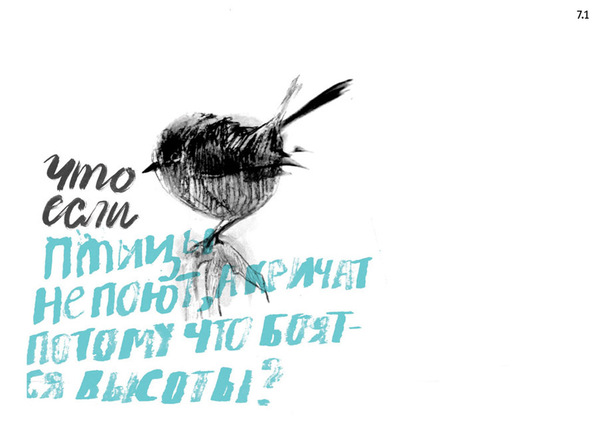 7.1
что
если
птицы
не поют, а кричат
потому что боят-
ся высоты?